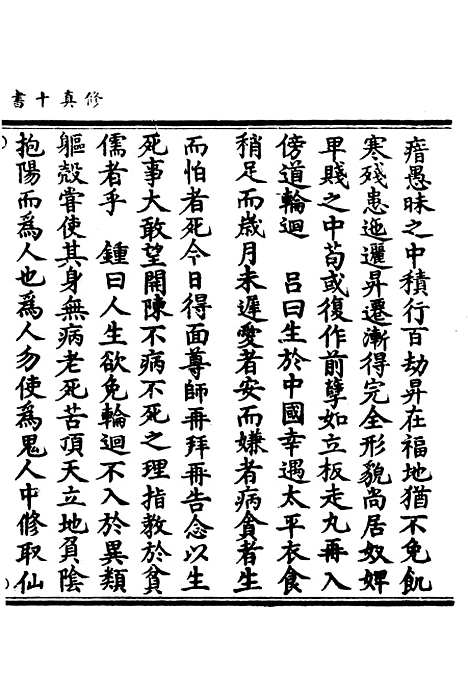 修真十書
瘖愚昧之中積行百劫昇在福地猶不免飢
寒殘患迤邐昇遷漸得完全形貌尚居奴婢
甲賤之中苟或復作前孽如立板走丸再入
傍道輪迴　呂曰生於中國幸遇太平衣食
稍足而歲月未遲愛者安而嫌者病貪者生
而怕者死今日得面尊師再拜再告念以生
死事大敢望開陳不病不死之理指教於貧
儒者乎　鍾曰人生欲免輪迴不入於異類
軀殼嘗使其身無病老死苦頂天立地負陰
抱陽而爲人也爲人勿使爲鬼人中修取仙